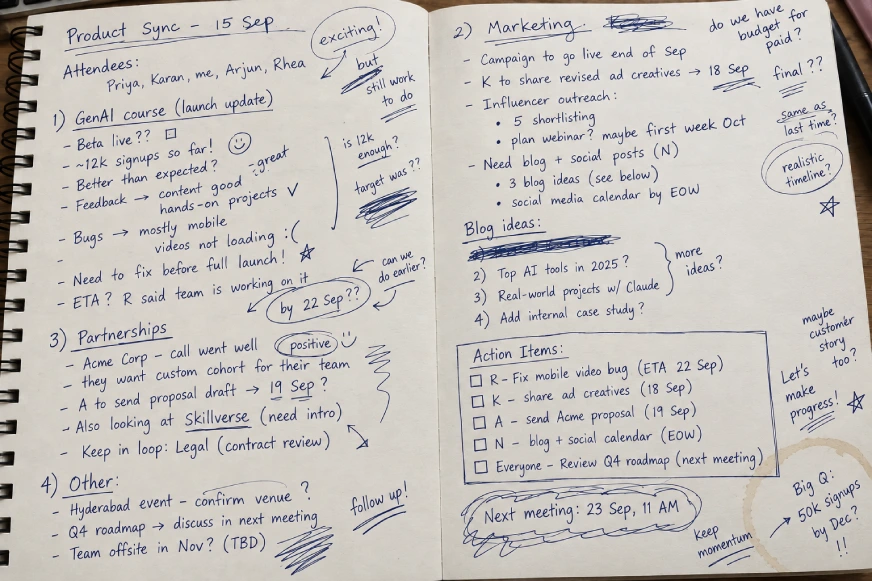 Product Sync – 15 Sep
exciting!
but
still work
to do
Attendees:
Priya, Karan, me, Arjun, Rhea
1) GenAI course (launch update)
- Beta live?? ☐
- ~12k signups so far! ☺
- Better than expected?
- Feedback → content good - great
hands-on projects ✓
- Bugs → mostly mobile
videos not loading :(
-
- Need to fix before full launch! ☆
- ETA? R said team is working on it
by 22 Sep??
is 12k
enough?
target was??
can we
do earlier?
3) Partnerships
- Acme Corp – call went well positive ☺
- they want custom cohort for their team
- A to send proposal draft → 19 Sep?
- Also looking at Skillverse (need intro)
- Keep in loop: Legal (contract review)
4) Other:
- Hyderabad event – confirm venue?
- Q4 roadmap → discuss in next meeting
- Team offsite in Nov? (TBD)
follow up!
2) Marketing
do we have
budget for
paid?
- Campaign to go live end of Sep
- K to share revised ad creatives → 18 Sep
final??
- Influencer outreach:
• 5 shortlisting
• plan webinar? maybe first week Oct
same as
last time?
- Need blog + social posts (N)
• 3 blog ideas (see below)
• social media calendar by EOW
realistic
timeline?
☆
Blog ideas:
2) Top AI tools in 2025?
3) Real-world projects w/ Claude
4) Add internal case study?
more
ideas?
maybe
customer
story
too?
Action Items:
☐ R – Fix mobile video bug (ETA 22 Sep)
☐ K – share ad creatives (18 Sep)
☐ A – send Acme proposal (19 Sep)
☐ N – blog + social calendar (EOW)
☐ Everyone – Review Q4 roadmap (next meeting)
Let's
make
progress! ☆
Next meeting: 23 Sep, 11 AM
keep
momentum
Big Q:
→ 50k signups
by Dec?
!!